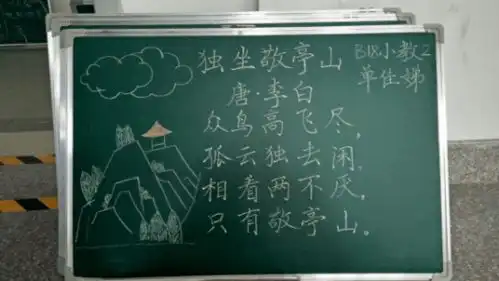 独坐敬亭山
唐·李白
众鸟高飞尽，
孤云独去闲。
相看两不厌，
只有敬亭山。
B18小教2
单佳娣